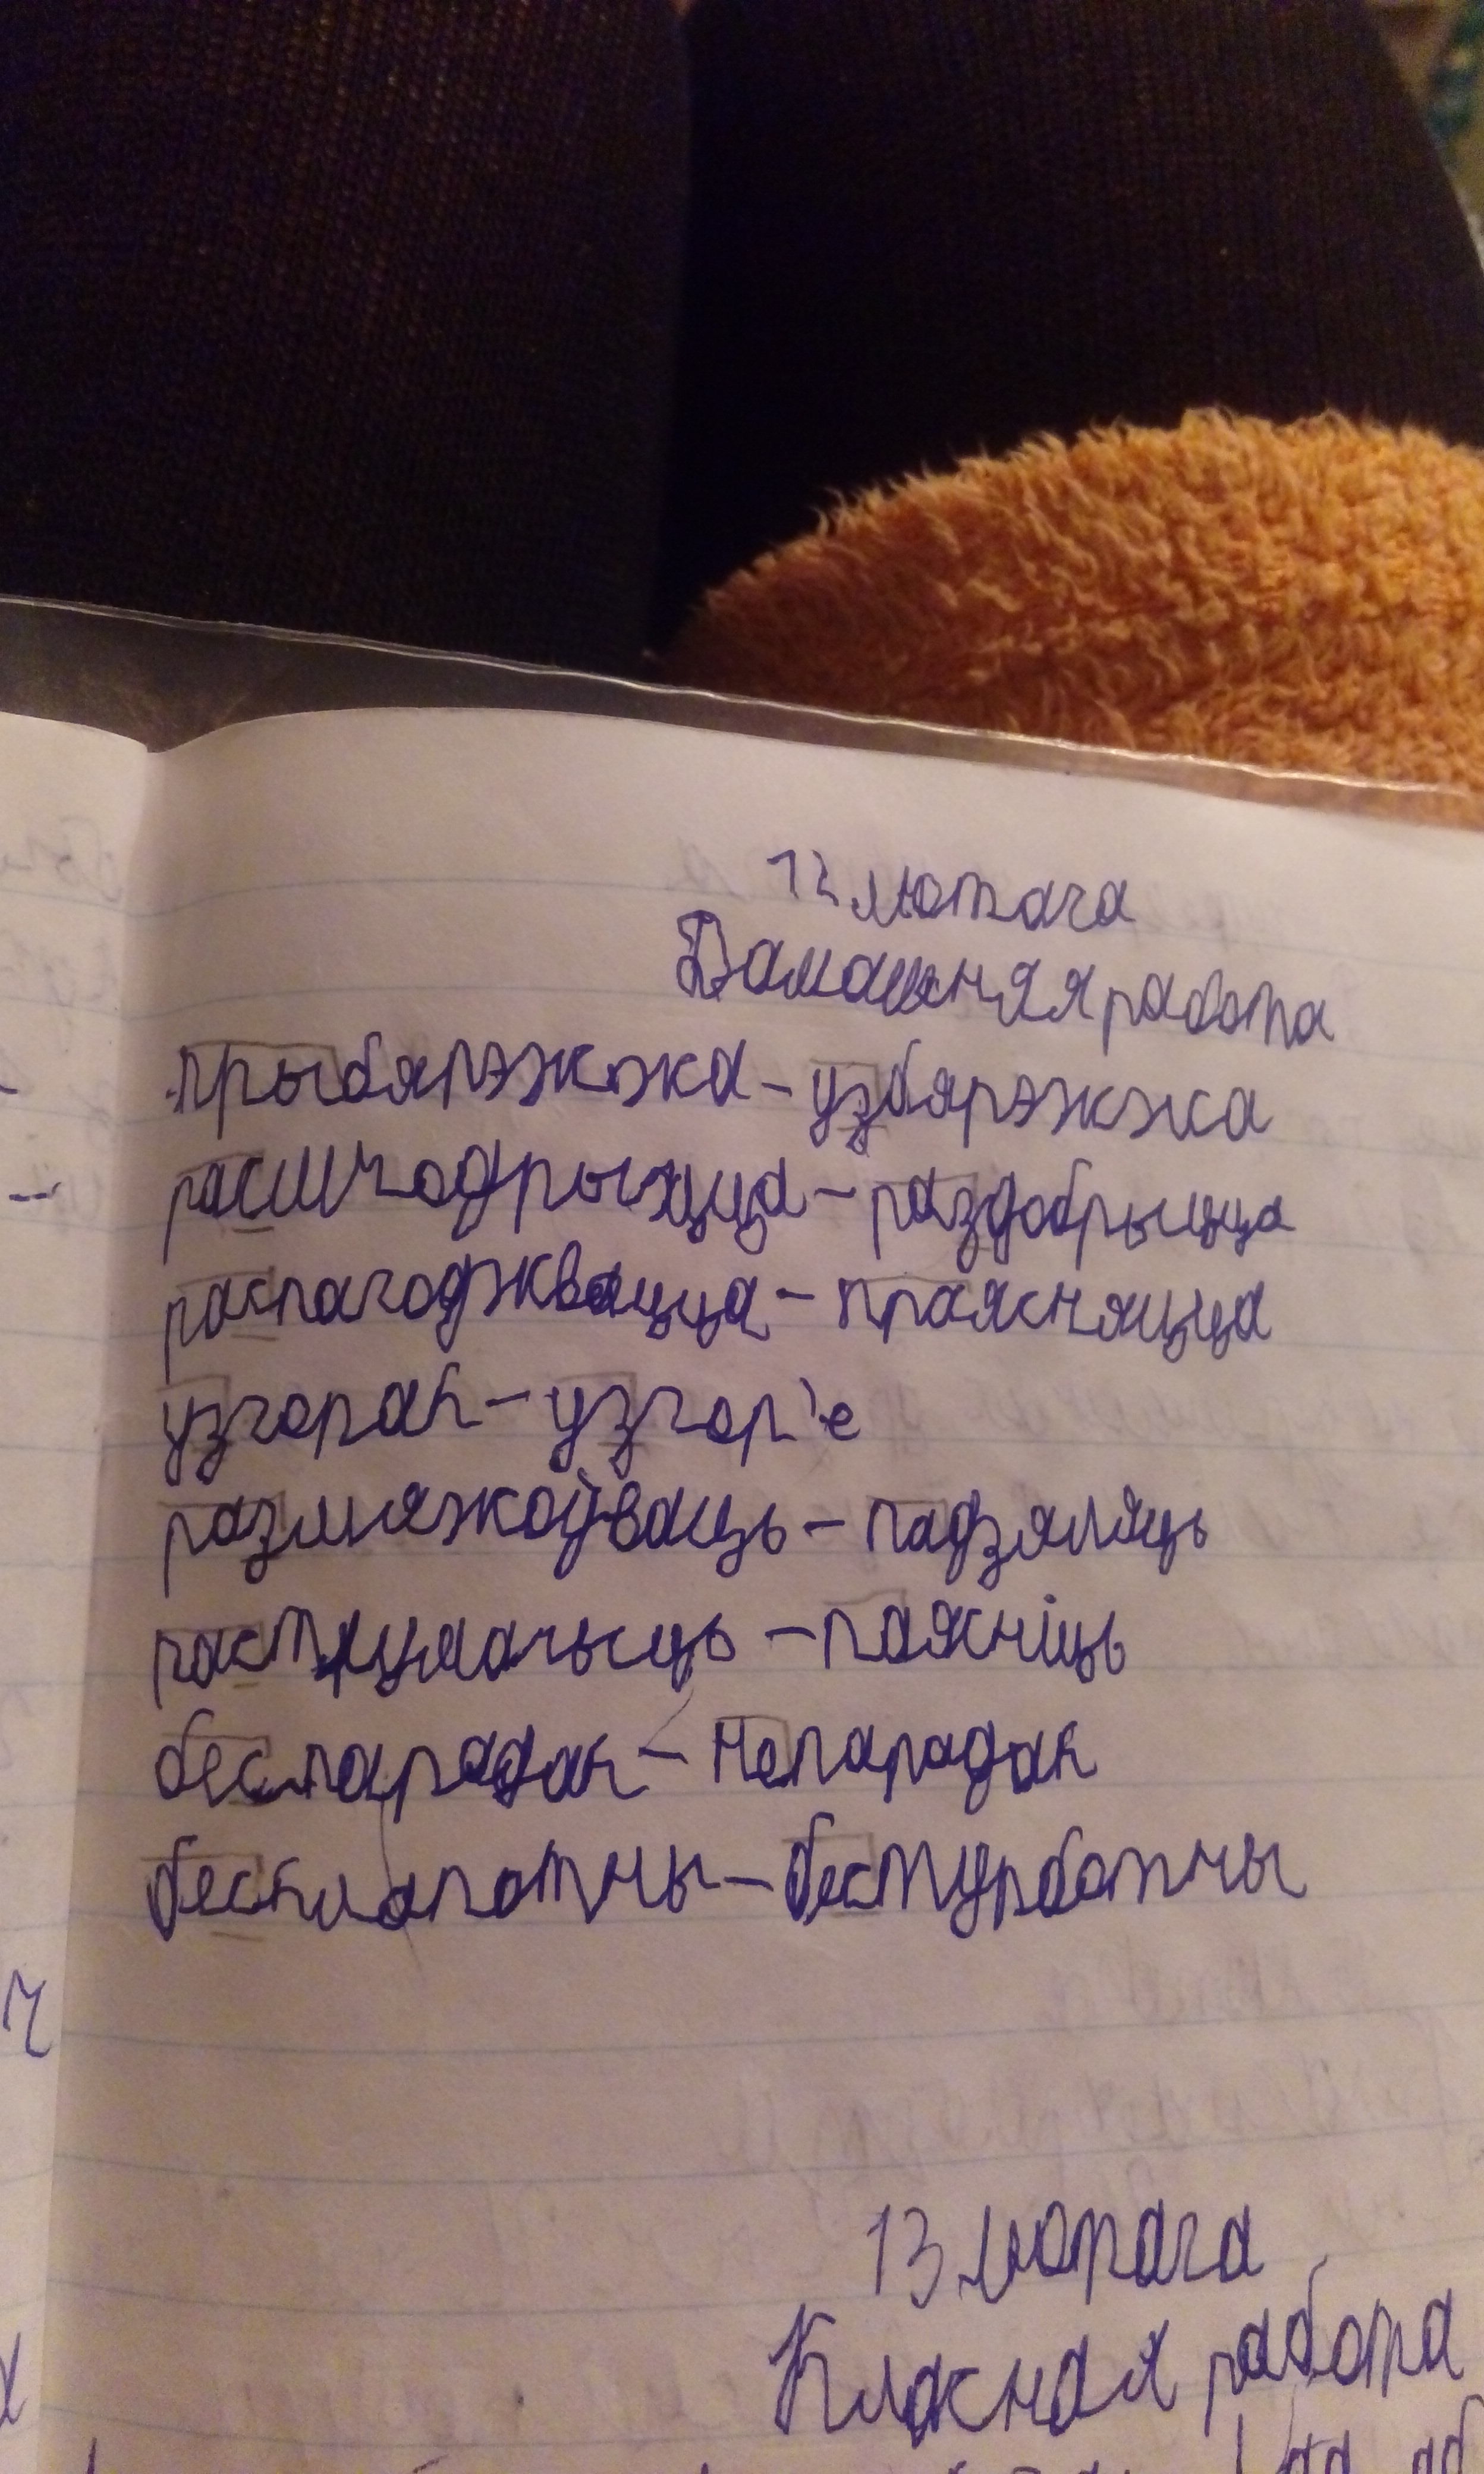 12 лютага
Дамашняя работа
прыбярэжжа - узбярэжжа
расшчодрыцца - раздобрыцца
распагоджвацца - праясняцца
узгорак - узгор'е
размяжоўваць - падзяляць
растлумачыць - паясніць
беспарадак - непарадак
бесклапотны - бестурботны
13 лютага
Класная работа